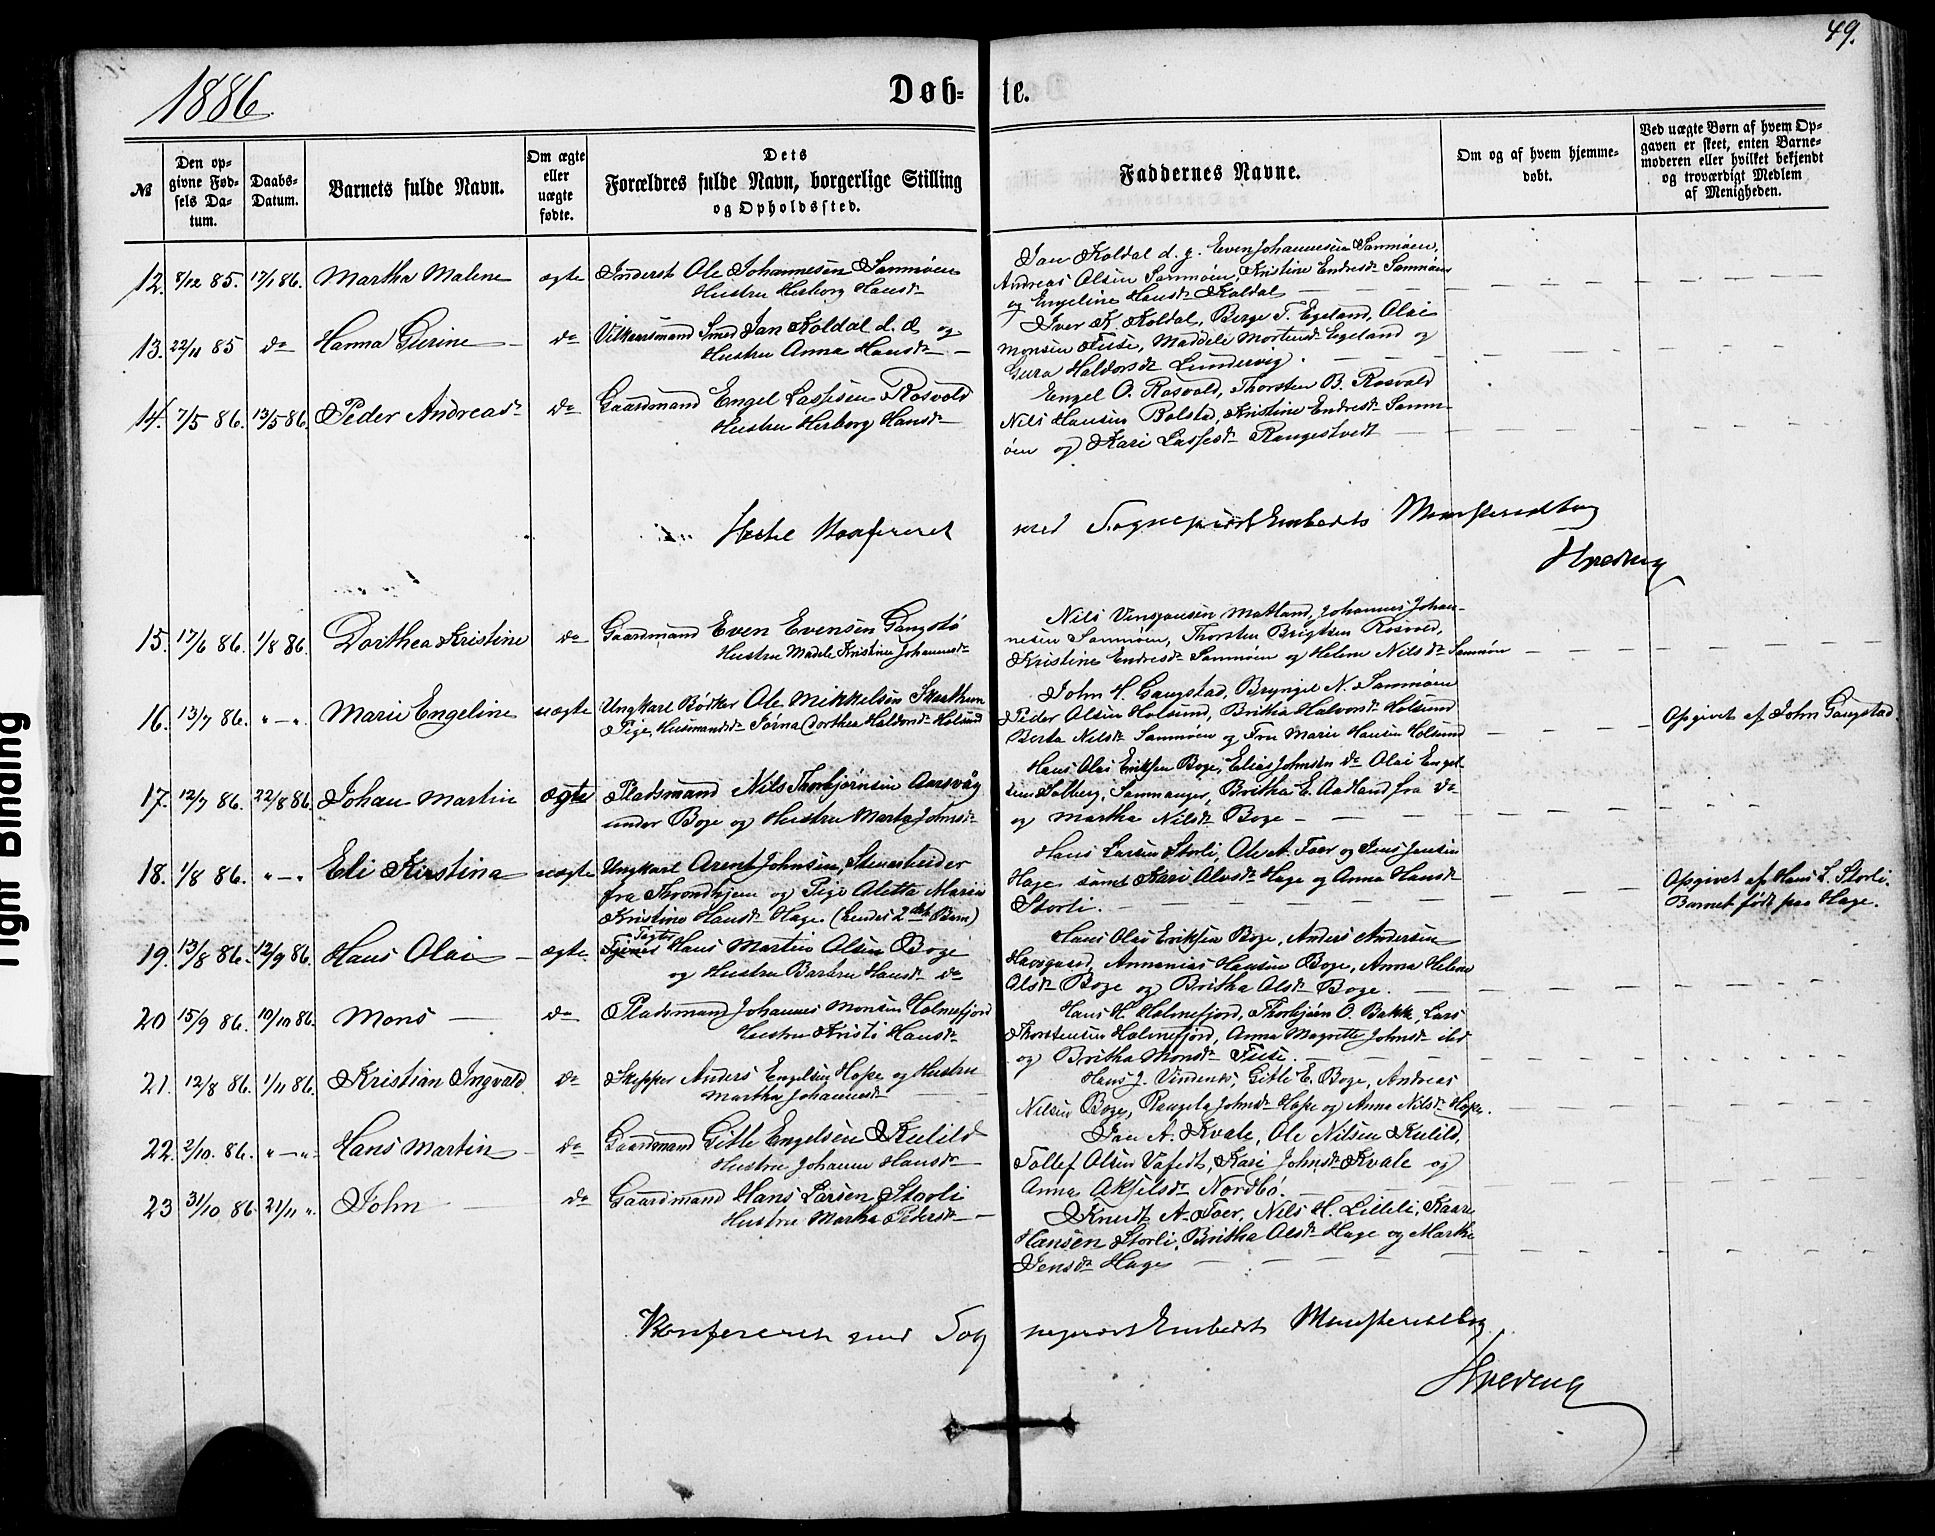 49.
1886.
Døb- te.
№
Den opgivne Fødsels Datum.
Daabs-Datum.
Barnets fulde Navn.
Om ægte eller uægte fødte.
Dets Forældres fulde Navn, borgerlige Stilling og Opholdssted.
Faddernes Navne.
Om og af hvem hjemmedøbt.
Ved uægte Børn af hvem Opgaven er skeet, enten Barnemoderen eller hvilket bekjendt og troværdigt Medlem af Menigheden.
12. 8/12 85. 17/1 86. Martha Malene ægte Inderst Ole Johannesen Samnøen
Hustru Herborg Hansdr
Jan Koldal d. y. Even Johannesen Samnøen,
Andreas Olsen Samnøen, Kristine Endresdr Samnøen
og Engeline Hansdr Koldal
13. 22/11 85 do Hanna Gurine do Vilkaarsmand Smed Jan Koldal d. æ og
Hustru Anna Hansdr
Iver K. Koldal, Berge T. Egeland, Olai
Monsen Fuse, Maddele Mortensdr Egeland og
Gura Haldorsdr Lundervig.
14. 7/5 86. 13/5 86. Peder Andreas do Gaardmand Engel Lassesen Rosvold
Hustru Herborg Hansdr
Engel O. Rosvold, Thorsten B. Rosvold
Nils Hansen Bolstad, Kristine Endresdr Samn-
øen og Kari Lassesdr Rangestvedt
Hertil Konfereret med Sogneprest Embedets Ministerialbog
15. 17/6 86. 1/8 86. Dorthea Kristine do Gaardmand Even Evensen Gangstø
Hustru Madele Kristine Johannesdr
Nils Vinsjansen Matland, Johannes Johan-
nesen Samnøen, Thorsten Brigtsen Rosvold,
Kristine Endresdr Samnøen og Helene Nilsdr Samnøen
16. 13/7 86. " — ". Marie Engeline uægte Ungkarl Bødker Ole Mikkelsen
Pige, Husmandsdr Dorthea Haldorsdr Holsund
John H. Gangstad, Brynjel N. Samnøen
Peder Olsen Holsund, Britha Halvorsdr Holsund
Berta Nilsdr Samnøen og Fru Marie Hansen Holsund
Opgivet af John Gangstad.
17. 12/7 86. 22/8 86. Johan Martin ægte Pladsmand Nils Thorbjørnsen Aarsvåg
under Boge og Hustru Marta Johnsdr
Hans Olai Eriksen Boge, Elias Johnsen do Olai Engel-
sen Solberg, Samnanger, Britha E. Aadland fra do
og Martha Nilsdr Boge
18. 1/8 86. " — ". Eli Kristina uægte Ungkarl Arent Johnsen, Stenarbeider
fra Throndhjem og Pige Aletta Marie
Kristine Hansdr Hage. (hendes 2det Barn)
Hans Larsen Storli, Ole A. Foer og Jens Jensen
Hage samt Kari Alvsdr Hage og Anna Hansdr
Storli.
Opgivet af Hans L. Storli.
Barnet født paa Hage.
19. 13/8 86. 12/9 86. Hans Olai ægte. Hans Martin Olsen Boge
og Hustru Barbru Hansdr do
Hans Olai Eriksen Boge, Anders Andersen
Havsgaard, Annanias Hansen Boge, Anna Helene
Olsdr Boge og Britha Olsdr Boge.
20 15/9 86. 10/10 86. Mons do Pladsmand Johannes Monsen Holmefjord
Hustru Kristi Hansdr
Hans H. Holmefjord, Thorbjørn O. Bakke, Lars
Thorstensen Holmefjord, Anna Magrette Johnsdr ibd
og Britha Monsdr Fuse.
21. 12/8 86. 1/11 86. Kristian Ingvald. do Skipper Anders Engelsen Hope og Hustru
Martha Johannesdr
Hans J. Vindenes, Gitle E. Boge, Andreas
Nilsen Boge, Rangela Johnsdr Hope og Anna Nilsdr Hope.
22. 2/10. 86. " — ". Hans Martin do Gaardmand Gitle Engelsen Kulild
Hustru Johanne Hansdr
Jan A. Kvale, Ole Nilsen Kulild,
Tollef Olsen, Kari Johnsdr Kvale og
Anna Akselsdr Nordbø.
23 31/10 86 21/11 ". John do Gaardmand Hans Larsen Storli
Hustru Martha Pedersdr
Knudt A. Foer, Nils H. Lilleli, Kaare
Hansen Storli, Britha Olsdr Hage og Martha
Jensdr Hage
Konfereret med Sogneprest Embedets Ministerialbog
Tight Binding